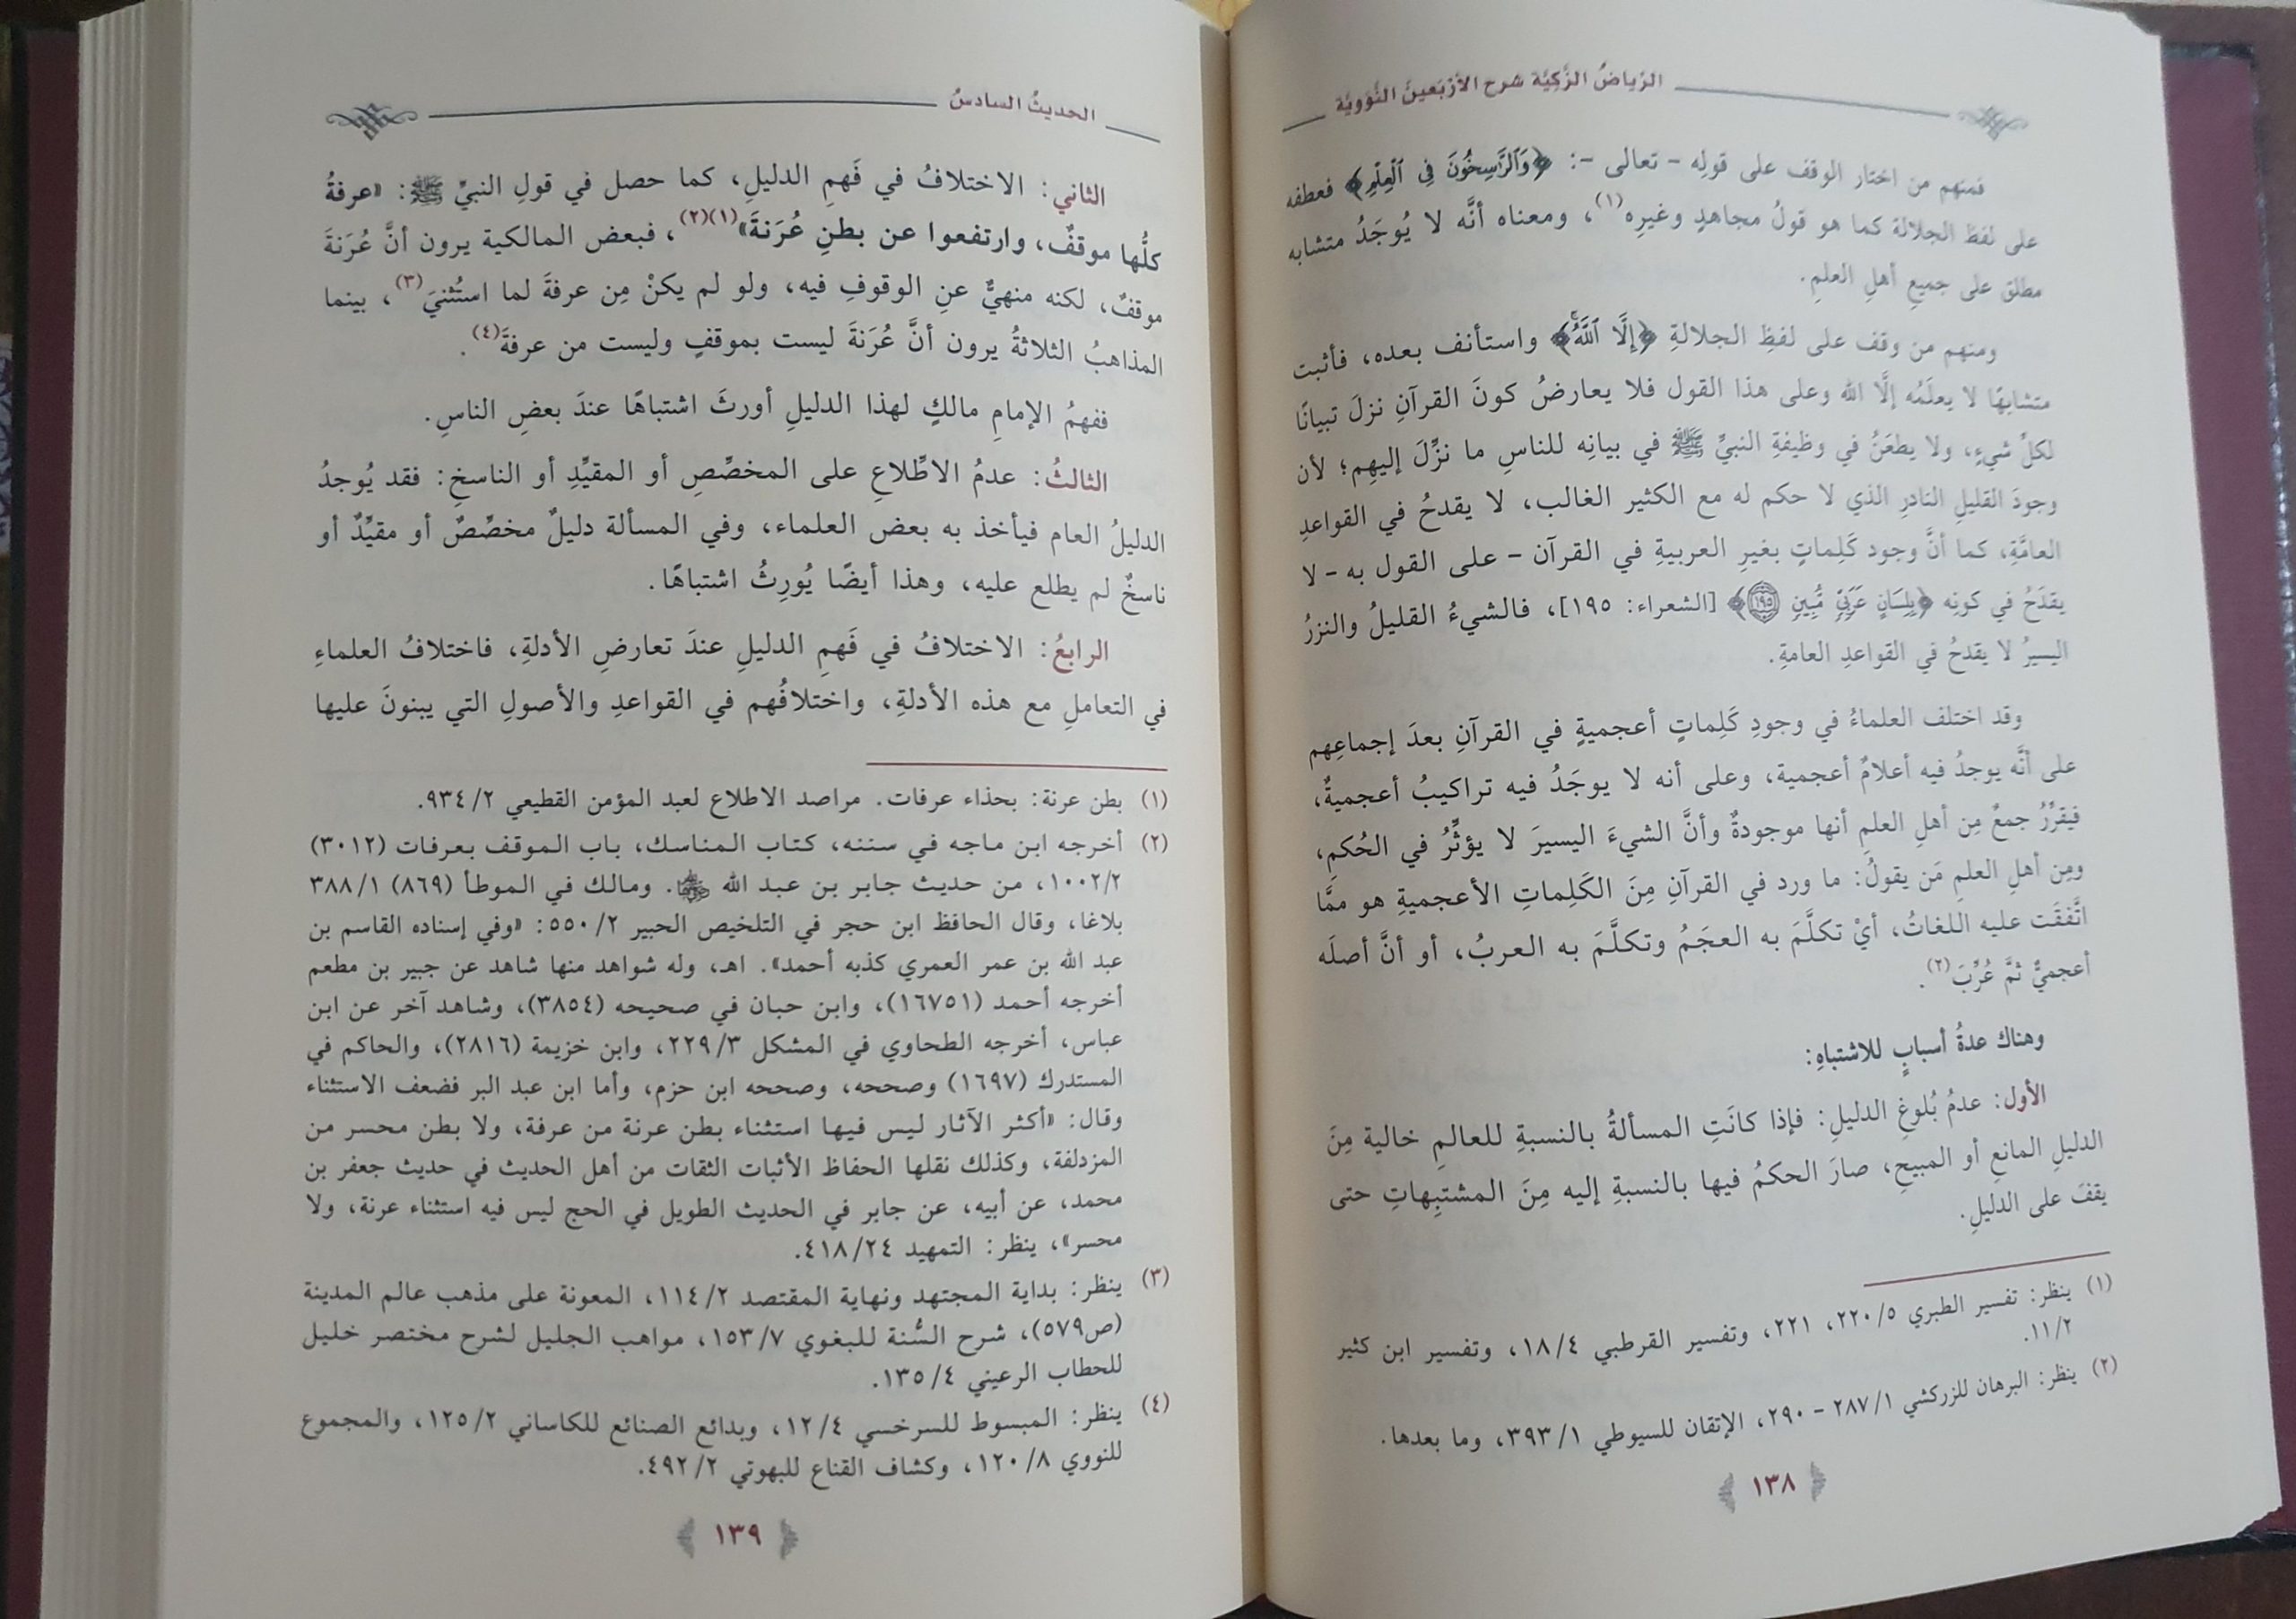 الرِّياضُ الزَّكِيَّة شرح الأَرْبَعينَ النَّوَوِيَّة
فمنهم من اختار الوقف على قولِه - تعالى -: ﴿وَٱلرَّٰسِخُونَ فِى ٱلْعِلْمِ﴾ فعطفه
على لفظ الجلالة كما هو قولُ مجاهدٍ وغيرِه(١)، ومعناه أنَّه لا يُوجَدُ متشابه
مطلق على جميعِ أهلِ العلمِ.
ومنهم من وقف على لفظِ الجلالةِ ﴿إِلَّا ٱللَّهُ﴾ واستأنف بعده، فأثبت
متشابهًا لا يعلَمُه إلَّا الله وعلى هذا القول فلا يعارضُ كونَ القرآنِ نزلَ تبيانًا
لكلِّ شيءٍ، ولا يطعَنُ في وظيفةِ النبيِّ ﷺ في بيانِه للناسِ ما نزِّلَ إليهِم؛ لأن
وجودَ القليلِ النادرِ الذي لا حكم له مع الكثير الغالب، لا يقدحُ في القواعدِ
العامَّةِ، كما أنَّ وجود كَلِماتٍ بغيرِ العربيةِ في القرآن - على القول به - لا
يقدَحُ في كونِه ﴿بِلِسَانٍ عَرَبِىٍّ مُّبِينٍ ۝١٩٥﴾ [الشعراء: ١٩٥]، فالشيءُ القليلُ والنزرُ
اليسيرُ لا يقدحُ في القواعدِ العامةِ.
وقد اختلف العلماءُ في وجودِ كَلِماتٍ أعجميةٍ في القرآنِ بعدَ إجماعِهم
على أنَّه يوجدُ فيه أعلامٌ أعجمية، وعلى أنه لا يوجَدُ فيه تراكيبُ أعجميةٌ،
فيقرِّرُ جمعٌ مِن أهلِ العلمِ أنها موجودةٌ وأنَّ الشيءَ اليسيرَ لا يؤثِّرُ في الحُكمِ،
ومِن أهلِ العلمِ مَن يقولُ: ما ورد في القرآنِ مِنَ الكَلِماتِ الأعجميةِ هو ممَّا
اتَّفقَت عليه اللغاتُ، أيْ تكلَّمَ به العجَمُ وتكلَّمَ به العربُ، أو أنَّ أصلَه
أعجميٌّ ثمَّ عُرِّبَ(٢).
وهناك عدةُ أسبابٍ للاشتباهِ:
الأول: عدمُ بُلوغِ الدليلِ: فإذا كانَتِ المسألةُ بالنسبةِ للعالمِ خالية مِنَ
الدليلِ المانعِ أو المبيحِ، صارَ الحكمُ فيها بالنسبةِ إليه مِنَ المشتبِهاتِ حتى
يقفَ على الدليلِ.
(١) ينظر: تفسير الطبري ٥/ ٢٢٠، ٢٢١، وتفسير القرطبي ٤/ ١٨، وتفسير ابن كثير
٢/ ١١.
(٢) ينظر: البرهان للزركشي ١/ ٢٨٧ - ٢٩٠، الإتقان للسيوطي ١/ ٣٩٣، وما بعدها.
١٣٨
الحديثُ السادسُ
الثاني: الاختلافُ في فَهمِ الدليلِ، كما حصل في قولِ النبيِّ ﷺ: «عرفةُ
كلُّها موقفٌ، وارتفعوا عن بطنِ عُرَنةَ»(١)(٢)، فبعض المالكية يرون أنَّ عُرَنةَ
موقفٌ، لكنه منهيٌّ عنِ الوقوفِ فيه، ولو لم يكنْ مِن عرفةَ لما استُثنيَ(٣)، بينما
المذاهبُ الثلاثةُ يرون أنَّ عُرَنةَ ليست بموقفٍ وليست من عرفةَ(٤).
ففهمُ الإمامِ مالكٍ لهذا الدليلِ أورثَ اشتباهًا عندَ بعضِ الناسِ.
الثالثُ: عدمُ الاطِّلاعِ على المخصِّصِ أو المقيِّدِ أو الناسخِ: فقد يُوجدُ
الدليلُ العام فيأخذ به بعض العلماء، وفي المسألة دليلٌ مخصِّصٌ أو مقيِّدٌ أو
ناسخٌ لم يطلع عليه، وهذا أيضًا يُورِثُ اشتباهًا.
الرابعُ: الاختلافُ في فَهمِ الدليلِ عندَ تعارضِ الأدلةِ، فاختلافُ العلماءِ
في التعاملِ مع هذه الأدلةِ، واختلافُهم في القواعدِ والأصولِ التي يبنونَ عليها
(١) بطن عرنة: بحذاء عرفات. مراصد الاطلاع لعبد المؤمن القطيعي ٢/ ٩٣٤.
(٢) أخرجه ابن ماجه في سننه، كتاب المناسك، باب الموقف بعرفات (٣٠١٢)
٢/ ١٠٠٢، من حديث جابر بن عبد الله رضي الله عنه. ومالك في الموطأ (٨٦٩) ١/ ٣٨٨
بلاغا، وقال الحافظ ابن حجر في التلخيص الحبير ٢/ ٥٥٠: «وفي إسناده القاسم بن
عبد الله بن عمر العمري كذبه أحمد». اهـ، وله شواهد منها شاهد عن جبير بن مطعم
أخرجه أحمد (١٦٧٥١)، وابن حبان في صحيحه (٣٨٥٤)، وشاهد آخر عن ابن
عباس، أخرجه الطحاوي في المشكل ٣/ ٢٢٩، وابن خزيمة (٢٨١٦)، والحاكم في
المستدرك (١٦٩٧) وصححه، وصححه ابن حزم، وأما ابن عبد البر فضعف الاستثناء
وقال: «أكثر الآثار ليس فيها استثناء بطن عرنة من عرفة، ولا بطن محسر من
المزدلفة، وكذلك نقلها الحفاظ الأثبات الثقات من أهل الحديث في حديث جعفر بن
محمد، عن أبيه، عن جابر في الحديث الطويل في الحج ليس فيه استثناء عرنة، ولا
محسر»، ينظر: التمهيد ٢٤/ ٤١٨.
(٣) ينظر: بداية المجتهد ونهاية المقتصد ٢/ ١١٤، المعونة على مذهب عالم المدينة
(ص٥٧٩)، شرح السُّنة للبغوي ٧/ ١٥٣، مواهب الجليل لشرح مختصر خليل
للحطاب الرعيني ٤/ ١٣٥.
(٤) ينظر: المبسوط للسرخسي ٤/ ١٢، وبدائع الصنائع للكاساني ٢/ ١٢٥، والمجموع
للنووي ٨/ ١٢٠، وكشاف القناع للبهوتي ٢/ ٤٩٢.
١٣٩